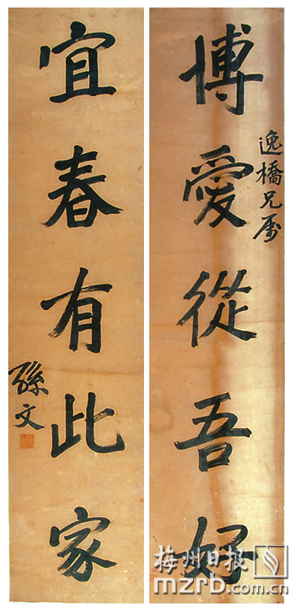 博愛從吾好
逸橋兄屬
宜春有此家
孫文
梅州日报
mzrb.com.cn